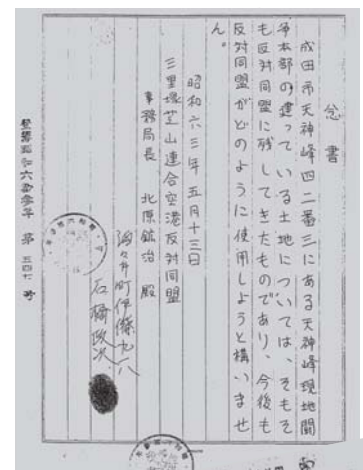 念書
成田市天神峰四二番三にある天神峰現地闘
争本部の建っている土地については、そもそ
も反対同盟に残してきたものであり、今後も
反対同盟がどのように使用しようと構いませ
ん。
昭和六三年五月十三日
三里塚芝山連合空港反対同盟
事務局長 北原鉱治 殿
石橋政次
登簿昭和六拾参年 第 三四六 号